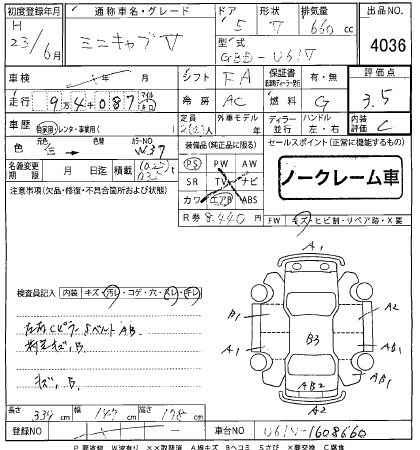 初度登録年月 通称車名・グレード ドア 形状 排気量 出品NO.
H 23/6月 ミニキャブV 5 V 660cc 4036
型式 GBD-U61V
車検 年 月 シフト FA 保証書 有・無 評価点
走行 9万4千087 マイル キロ 冷房 AC 燃料 G 3.5
車歴 自家用・レンタ・事業用( ) 定員 2(4)人 外車モデル 年 ディーラー 並行 ハンドル 左・右 内装評価 C
色 元色 色替 カラーNO W37 装備品(純正品に限る) セールスポイント(正常に機能するもの)
名義変更期限 月 日迄 積載 PS PW AW
ノークレーム車
注意事項(欠品・修復・不具合箇所および状態) SR TV ナビ
カワ エアB ABS
R券 8,440円 FW キズ・ヒビ割・リペア跡・X要
A1
検査員記入 内装 キズ・汚レ・コゲ・穴・スレ・キレ
B1 A2
左右CピラーSベルトAB B3
A1 AB1
キズ、B AB2 AB1
A2
長さ 334cm 幅 147cm 高さ 178cm
登録NO 車台NO U61V-1608660
P要塗装 W波有り XX取替済 A線キズ Bヘコミ Sさび X要交換 C腐食